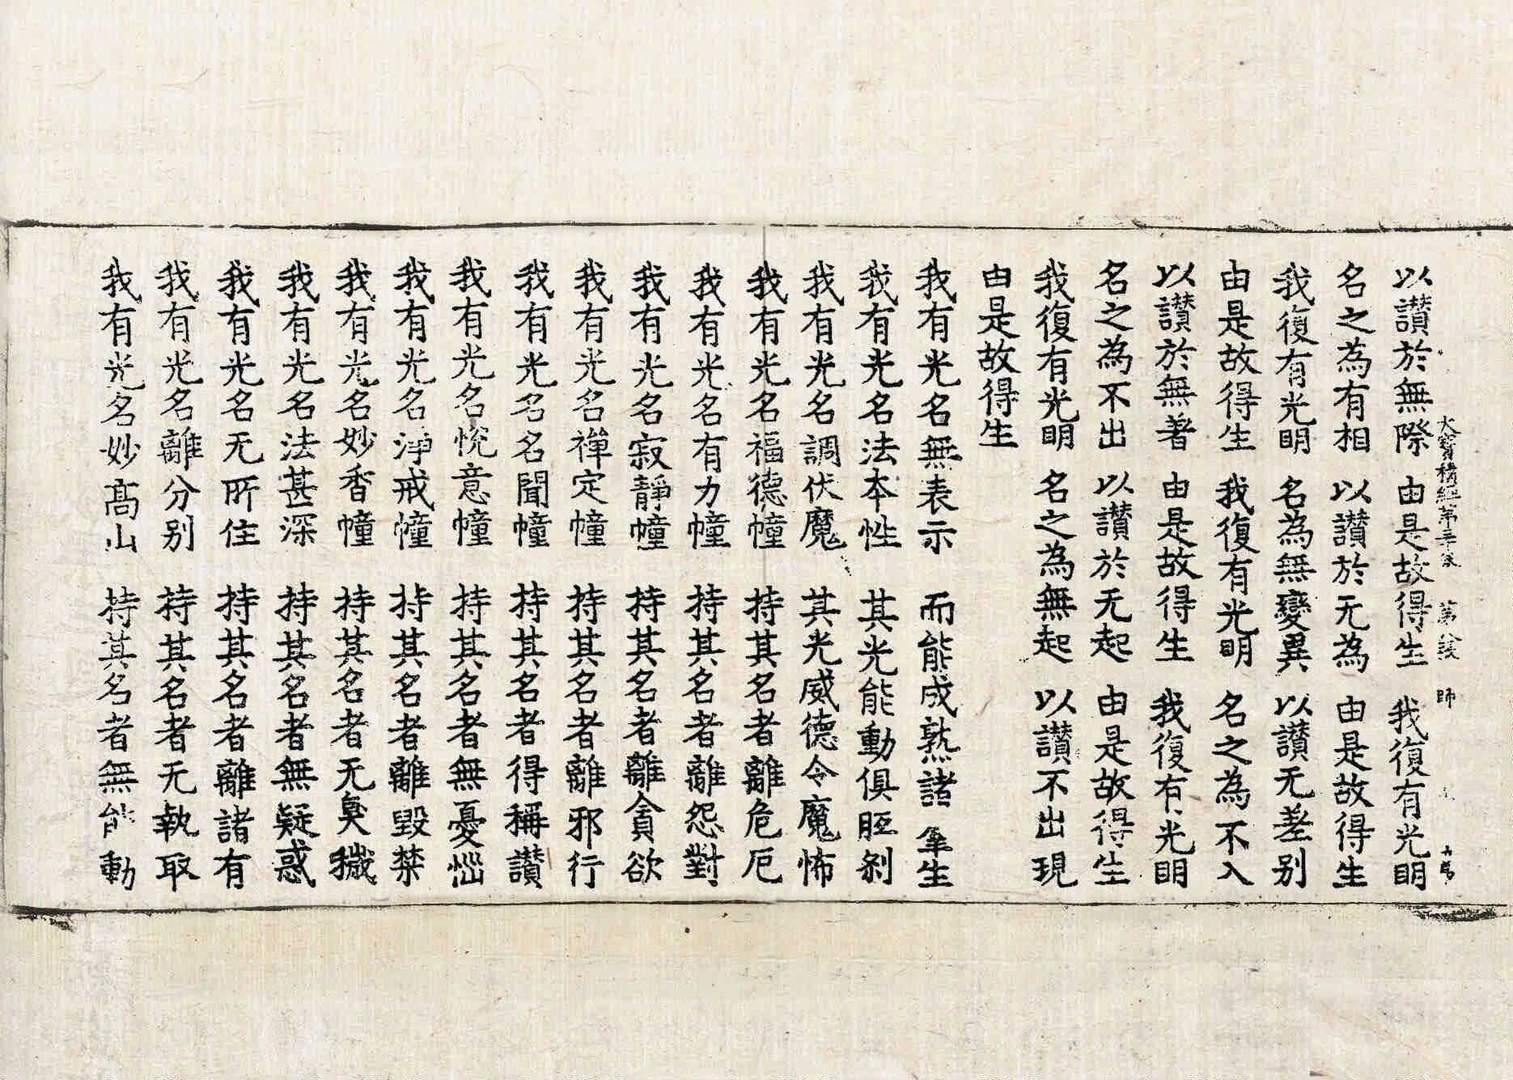 以讃於無際 由是故得生 我復有光明
大寶積經第三十 第 師
名之為有相 以讃於无為 由是故得生
我復有光明 名為無變異 以讃无差别
由是故得生 我復有光明 名之為不入
以讃於無著 由是故得生 我復有光明
名之為不出 以讃於无起 由是故得生
我復有光明 名之為無起 以讃不出現
由是故得生
我有光名無表示 而能成熟諸羣生
我有光名法本性 其光能動俱胝剎
我有光名調伏魔 其光威德令魔怖
我有光名福德幢 持其名者離危厄
我有光名有力幢 持其名者離怨對
我有光名寂靜幢 持其名者離貪欲
我有光名禪定幢 持其名者離邪行
我有光名名聞幢 持其名者得稱讃
我有光名悅意幢 持其名者無憂惱
我有光名淨戒幢 持其名者離毀禁
我有光名妙香幢 持其名者无臭穢
我有光名法甚深 持其名者無疑惑
我有光名无所住 持其名者離諸有
我有光名離分别 持其名者无執取
我有光名妙高山 持其名者無能動